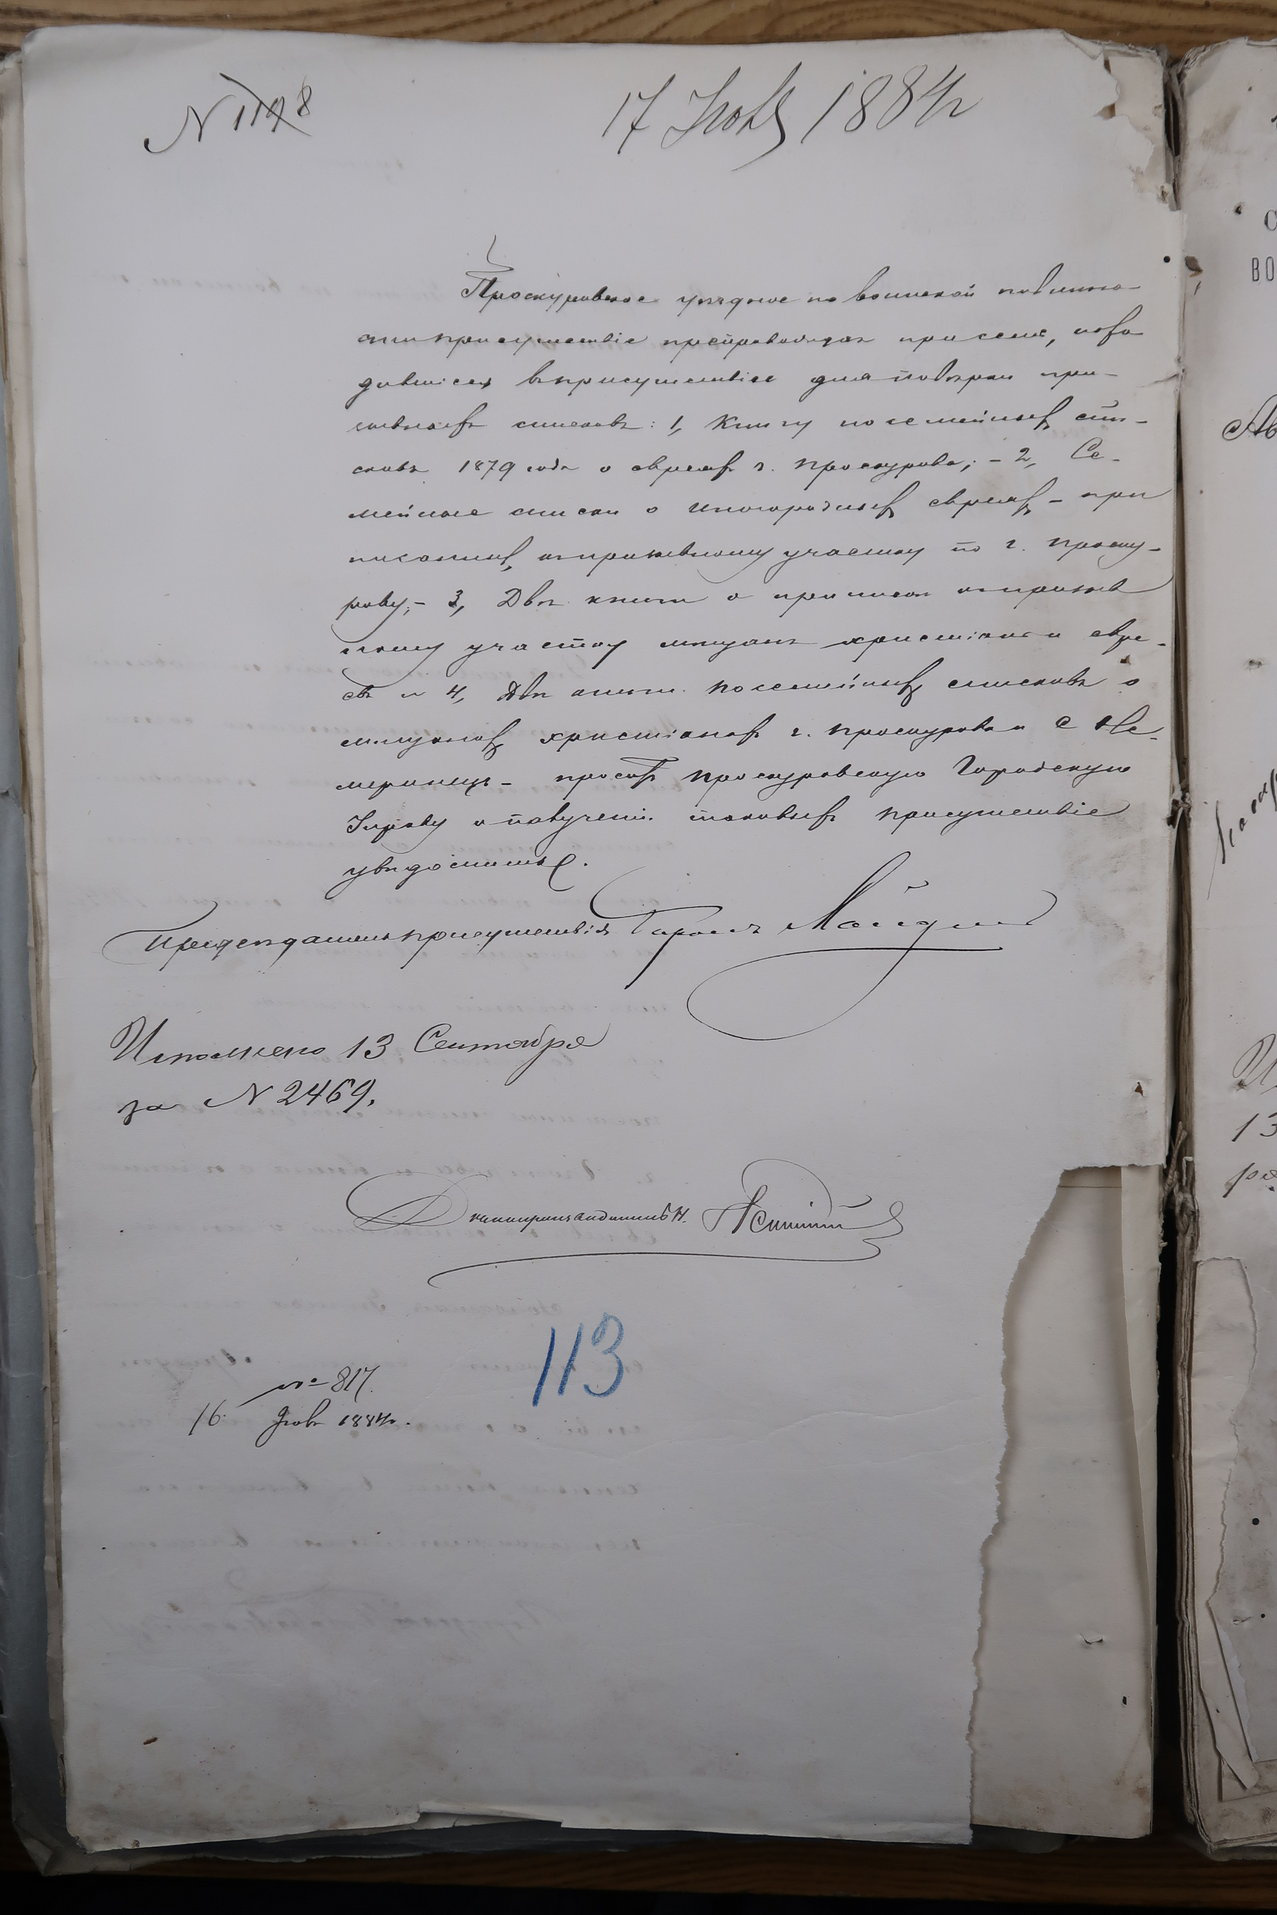 N 1178
17 Іюля 1884 г
Проскуровское уѣздное по воинской повинно-
сти присутствіе препровождая при семъ, нахо
дившіеся въ присутствіи для повѣрки при-
зывныхъ списковъ: 1, Книгу посемейныхъ спи-
сковъ 1879 года о евреяхъ г. Проскурова; - 2, Се-
мейные списки о иногородныхъ евреяхъ - при
писанныхъ къ призывному участку по г. Проску-
рову; - 3, Двѣ книги о припискѣ къ призыв
ному участку мѣщанъ христіанъ и евре-
евъ и 4, Двѣ книги посемейныхъ списковъ о
мѣщанахъ христіанахъ г. Проскурова и с
меринецъ - проситъ Проскуровскую Городскую
Управу о полученіи таковыхъ присутствіе
увѣдомить.
Предсѣдатель присутствія
Исполнено 13 Сентября
за N 2469.
Дѣлопроизводитель
113
№ 817
16 1884 г.
ВО
13